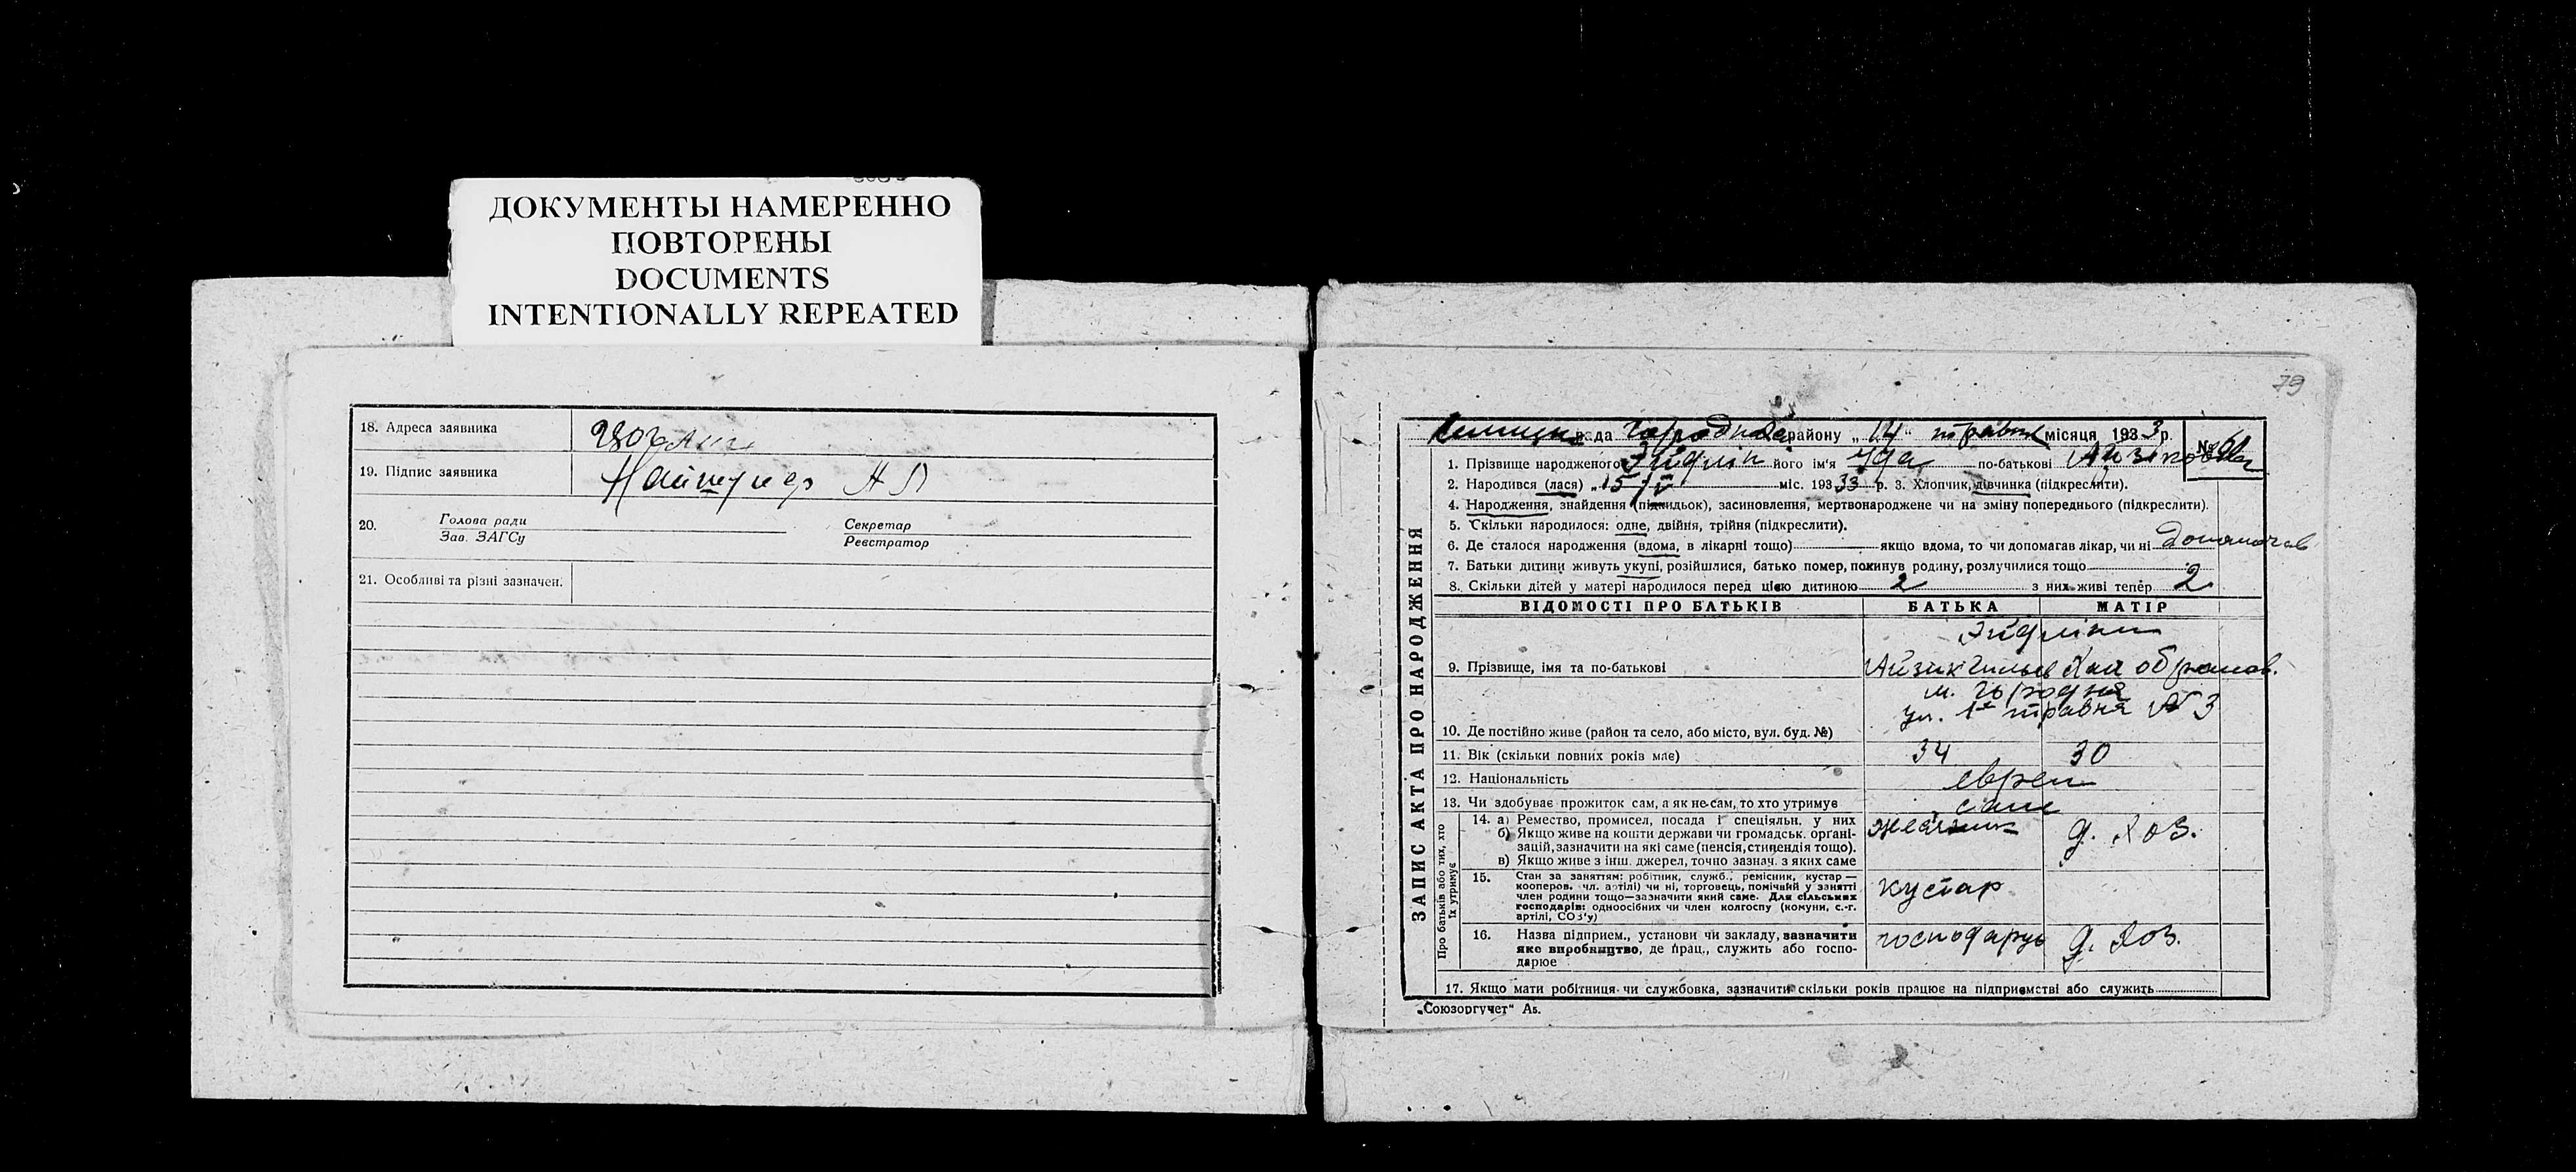 ДОКУМЕНТЫ НАМЕРЕННО
ПОВТОРЕНЫ
DOCUMENTS
INTENTIONALLY REPEATED
18. Адреса заявника
19. Підпис заявника
20. Голова ради
Зав. ЗАГСу
Секретар
Реєстратор
21. Особливі та різні зазначен.
79
ЗАПИС АКТА ПРО НАРОДЖЕННЯ
рада району „14“ травня місяця 1933 р. №
1. Прізвище народженого Эйдлін його ім'я Іда по-батькові Айзіковна
2. Народився (лася) „15/V міс. 193 33 р. 3. Хлопчик, дівчинка (підкреслити).
4. Народження, знайдення (підкидьок), засиновлення, мертвонароджене чи на зміну попереднього (підкреслити).
5. Скільки народилося: одне, двійня, трійня (підкреслити).
6. Де сталося народження (вдома, в лікарні тощо) якщо вдома, то чи допомагав лікар, чи ні допомагав
7. Батьки дитини живуть укупі, розійшлися, батько помер, покинув родину, розлучилися тощо
8. Скільки дітей у матері народилося перед цією дитиною 2 з них живі тепер 2
ВІДОМОСТІ ПРО БАТЬКІВ БАТЬКА МАТІР
9. Прізвище, імя та по-батькові
Айзик Хая
м. Городня
ул. 1го травня № 3
10. Де постійно живе (район та село, або місто, вул. буд. №)
11. Вік (скільки повних років має) 34 30
12. Національність евреи
13. Чи здобуває прожиток сам, а як не сам, то хто утримує сами
Про батьків або тих, хто їх утримує
14. а) Ремество, промисел, посада і спеціяльн. у них
б) Якщо живе на кошти держави чи громадськ. органі-
зацій, зазначити на які саме (пенсія, стипендія тощо).
в) Якщо живе з інш. джерел, точно зазнач. з яких саме
д. хоз.
15. Стан за заняттям: робітник, служб., ремісник, кустар —
кооперов. чл. артілі) чи ні, торговець, помічний у занятті
член родини тощо—зазначити який саме. Для сільських
господарів: одноосібних чи член колгоспу (комуни, с.-г.
артілі, СОЗ'у)
кустар
16. Назва підприєм., установи чи закладу, зазначити
яке виробництво, де прац., служить або госпо-
дарює
господарує д. хоз.
17. Якщо мати робітниця чи службовка, зазначити скільки років працює на підприємстві або служить
„Союзоргучет“ А5.